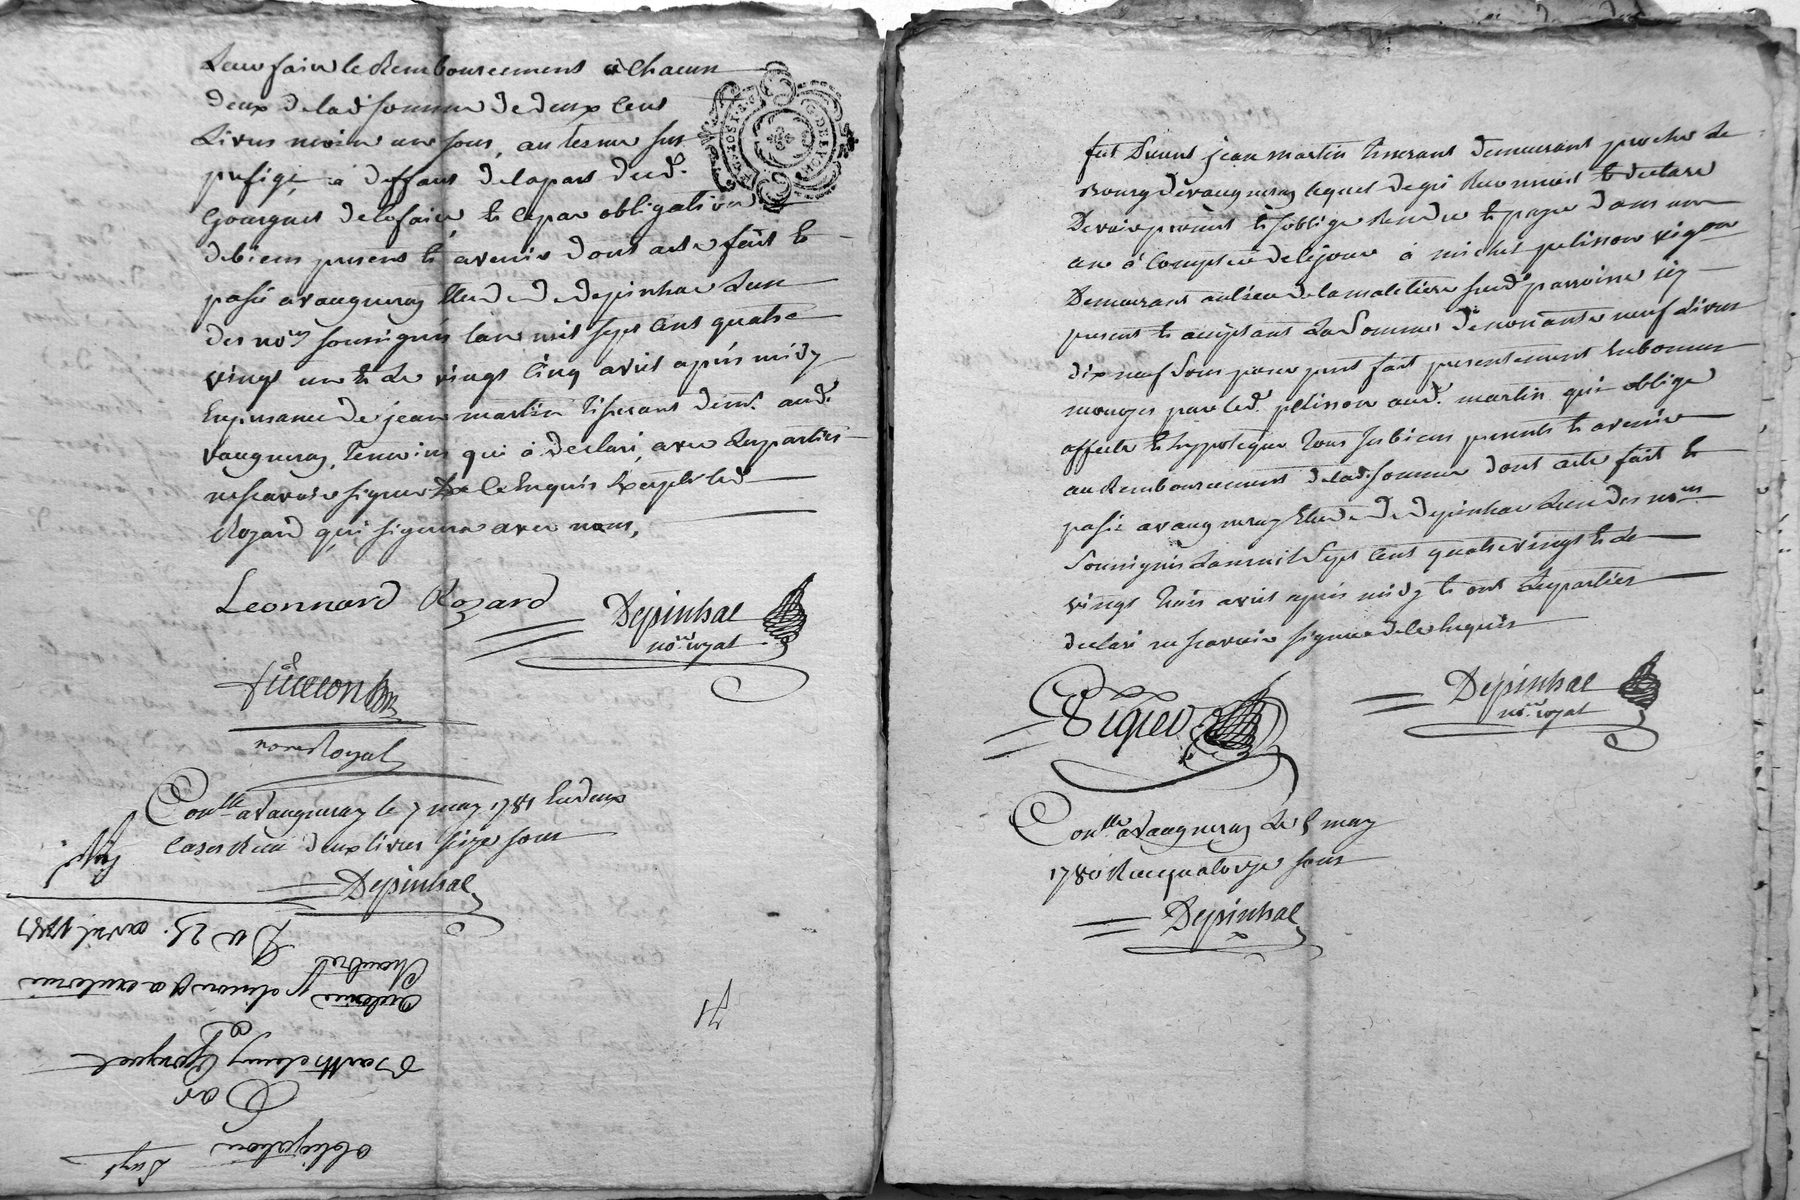 Leur faire le Remboursement à Chacun
deux de lad somme de deux Cens
Livres moins un sous, au terme sus
prefigé, à deffaut de la part dud.
Gourguet de le faire, et ce par obligation
de biens presens et avenir dont acte fait et
passé a vaugneray Etude de depinhac L'un
des no.res soussignés l'an mil sept Cens quatre
vingt un et Le vingt Cinq avril après midy
En presance de jean martin Tisserant dem.t aud.
vaugneray, Temoins qui à declaré, avec Les parties
ne scavoir signer de ce Enquis Excepté led
Rozard qui signera avec nous,
Leonnard Rozard
Depinhac
no.re royal
nore Royal
Con.lle a Vaugneray le 7 may 1781 En deux
Cases Reçu deux livres seize sous
Depinhac
Du 25. avril 1781
Chambret
Antoine
Barthelemy Gourguet
Par
obligation
fut Present jean martin Tisserant demeurant proche le
Bourg de vaugneray lequel de gré Reconnoit et declare
Devoir promet et s'oblige Rendre et payer dans un
an à Compter de ce jour à michel pelisson vigon
Demeurant au lieu de la maletiere susd.e parroisse icy
present et acceptant La Somme de nonante neuf Livres
dix neuf Sous pour prest fait presentement En bonnes
monoyes par led. pelisson aud. martin qui oblige
affecte et hypoteque Tous ses biens presents et avenir
au Remboursement de lad. somme dont acte fait et
passé a vaugneray Etude de Depinhac L'un des no.res
Soussignés L'an mil Sept Cent quatre vingt et le
vingt Trois avril après midy et ont Les parties
declaré ne scavoir signer de ce Enquis
Depinhac
no.re royal
Con.lle a Vaugneray Le 5 may
1780 Reçu quatorze sous
Depinhac